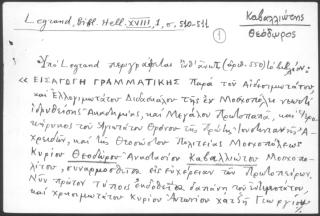 Legrand, Bibl. Hell. XVIII, 1, σ. 510-511
Καβαλλιώτης
Θεόδωρος
①
Ὑπὸ Legrand περιγράφεται (ἀριθ. 550) τὸ βιβλίον:
« ΕΙΣΑΓΩΓΗ ΓΡΑΜΜΑΤΙΚΗΣ παρὰ τοῦ Αἰδεσιμωτάτου,
καὶ Ἐλλογιμωτάτου Διδασκάλου τῆς ἐν Μοσχοπόλει νεωστὶ
ἱδρυθείσης Ἀκαδημίας, καὶ Μεγάλου Πρωτοπαπᾶ, καὶ Ἱερο
κήρυκος τοῦ Ἁγιωτάτου Θρόνου τῆς Πρώτης Ἰουστινιανῆς Ἀ-
χρειδῶν, καὶ τῆς Θεοσώστου Πολιτείας Μοσχοπόλεως
Κυρίου Θεοδώρου Ἀναστασίου Καβαλλιώτου Μοσχοπο-
λίτου, συναρμοσθεῖσα εἰς εὐχέρειαν τῶν Πρωτοπείρων.
Νῦν πρῶτον τύποις ἐκδοθεῖσα δαπάνῃ τοῦ ἐντιμοτάτου,
καὶ χρησιμωτάτου Κυρίου Ἀντωνίου χατζῆ Γεωργίου